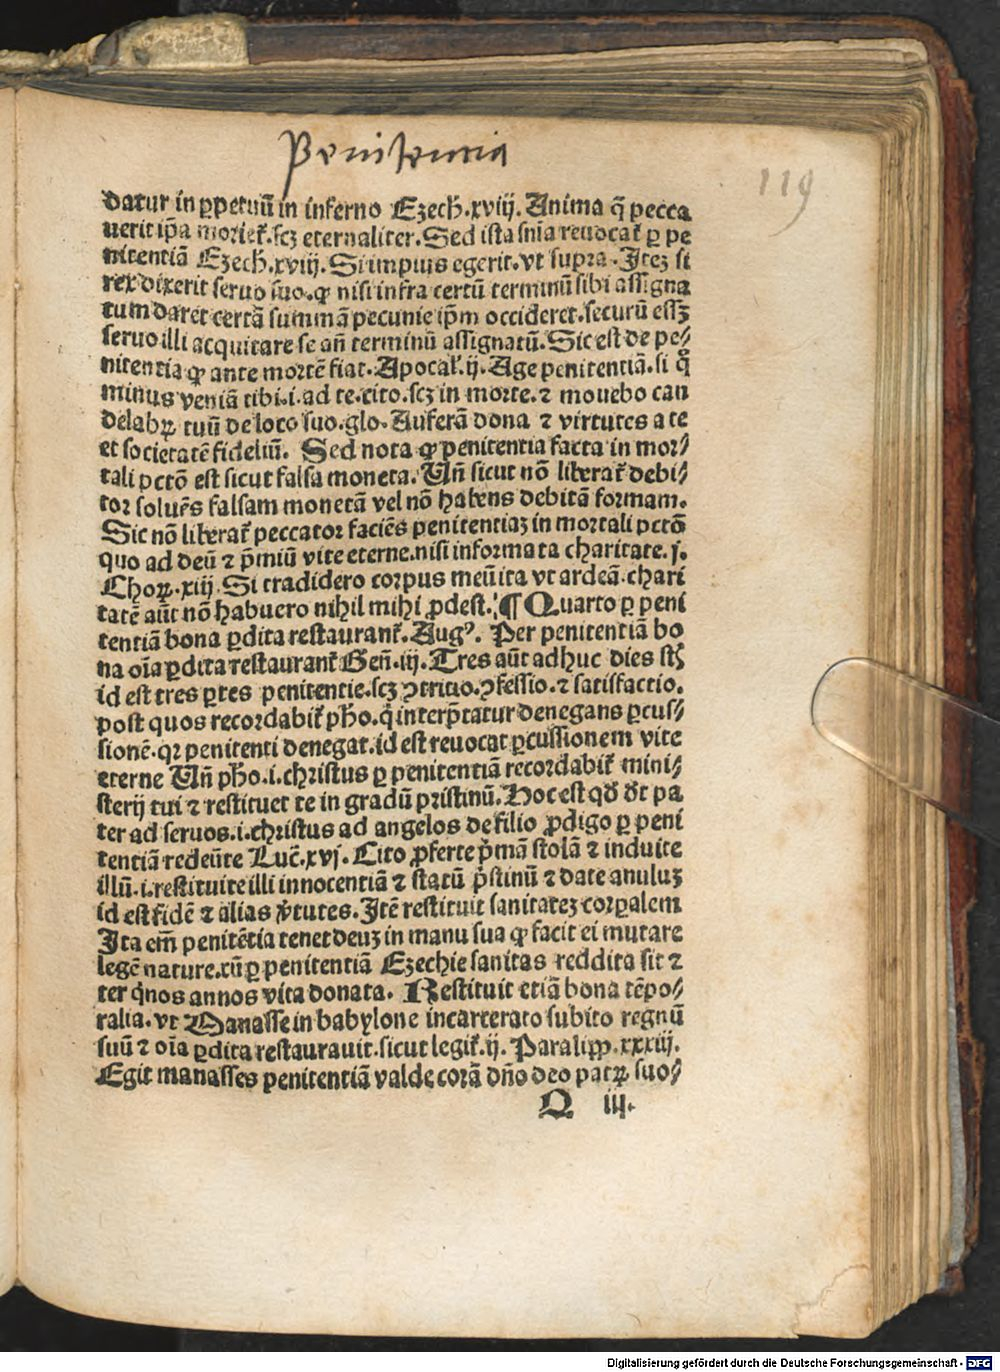 Penitencia
119
datur in ꝑpetuū in inferno Ezech̄.xviij. Anima q̄ pecca
uerit ip̄a moriet᷑.scꝫ eternaliter. Sed ista sn̄ia reuocat᷑ ꝑ pe
nitentiā Ezech̄.xviij. Si impius egerit.vt supra. Iteꝫ si
rex dixerit seruo suo.ꝙ nisi infra certū terminū sibi assigna
tum daret certā summā pecunie ip̄m occideret.securū essꝫ
seruo illi acquitare se an̄ terminū assignatū. Sic est de pe⸗
nitentia ꝙ ante mortē fiat. Apocal᷑.ij. Age penitentiā.si qͦ
minus veniā tibi.i.ad te.cito.scꝫ in morte.⁊ mouebo can
delabꝝ tuū de loco suo.glo. Auferā dona ⁊ virtutes a te
et societatē fideliū. Sed nota ꝙ penitentia facta in mor⸗
tali pctō est sicut falsa moneta. Un̄ sicut nō liberat᷑ debi⸗
tor soluēs falsam monetā vel nō habens debitā formam.
Sic nō liberat᷑ peccator faciēs penitentiaꝫ in mortali pctō
quo ad deū ⁊ p̄miū vite eterne.nisi informata charitate.j.
Choꝝ.xiij. Si tradidero corpus meū ita vt ardeā.chari
tatē aūt nō habuero nihil mihi ꝓdest. ¶ Quarto ꝑ peni
tentiā bona ꝑdita restaurant᷑. Augꝰ. Per penitentiā bo
na oīa ꝑdita restaurant᷑ Gen̄.iij. Tres aūt adhuc dies st̄
id est tres ꝑtes penitentie.scꝫ ꝯtritio.ꝯfessio.⁊ satisfactio.
post quos recordabit᷑ pho̅.qͥ interp̄tatur denegans ꝑcus⸗
sionē.qꝛ penitenti denegat.id est reuocat ꝑcussionem vite
eterne Un̄ pho̅.i.christus ꝑ penitentiā recordabit᷑ mini⸗
sterij tui ⁊ restituet te in gradū pristinū. Hoc est qd̄ dt̄ pa
ter ad seruos.i.christus ad angelos de filio ꝓdigo ꝑ peni
tentiā redeūte Luc̄.xvj. Cito ꝓferte p̄mā stolā ⁊ induite
illū.i.restituite illi innocentiā ⁊ statū p̄stinū ⁊ date anuluꝫ
id est fidē ⁊ alias v̓tutes. Itē restituit sanitateꝫ corꝑalem
Ita em̄ penitētia tenet deuꝫ in manu sua ꝙ facit ei mutare
legē nature.cū ꝑ penitentiā Ezechie sanitas reddita sit ⁊
ter qͥnos annos vita donata. Restituit etiā bona tēpo⸗
ralia.vt Manasse in babylone incarcerato subito regnū
suū ⁊ oīa ꝑdita restaurauit.sicut legit᷑.ij. Paralipꝝ.xxxiij.
Egit manasses penitentiā valde corā dn̄o deo patꝝ suo⸗
Q iij.
Digitalisierung gefördert durch die Deutsche Forschungsgemeinschaft - DFG